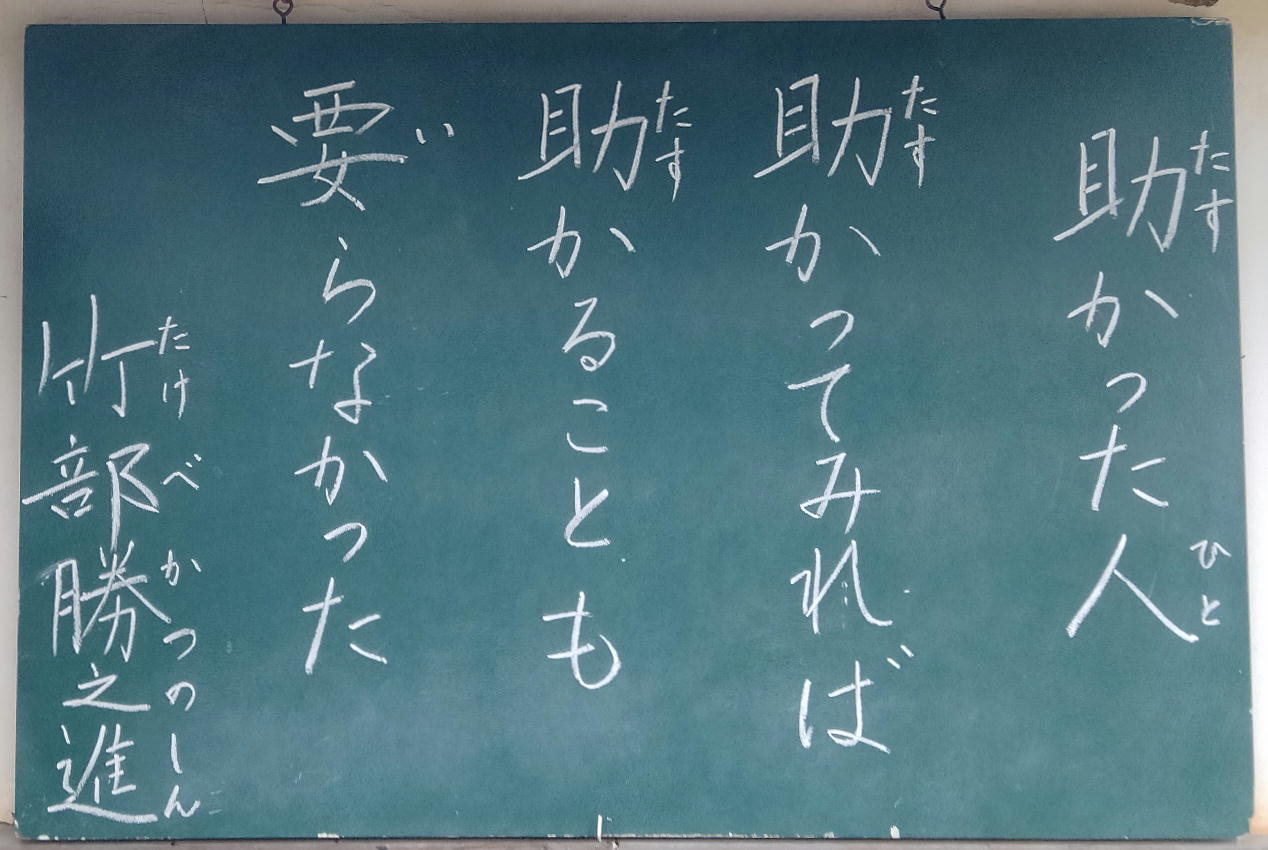 助かった人
助かってみれば
助かることも
要らなかった
竹部勝之進
たす
ひと
たす
たす
い
たけべかつのしん